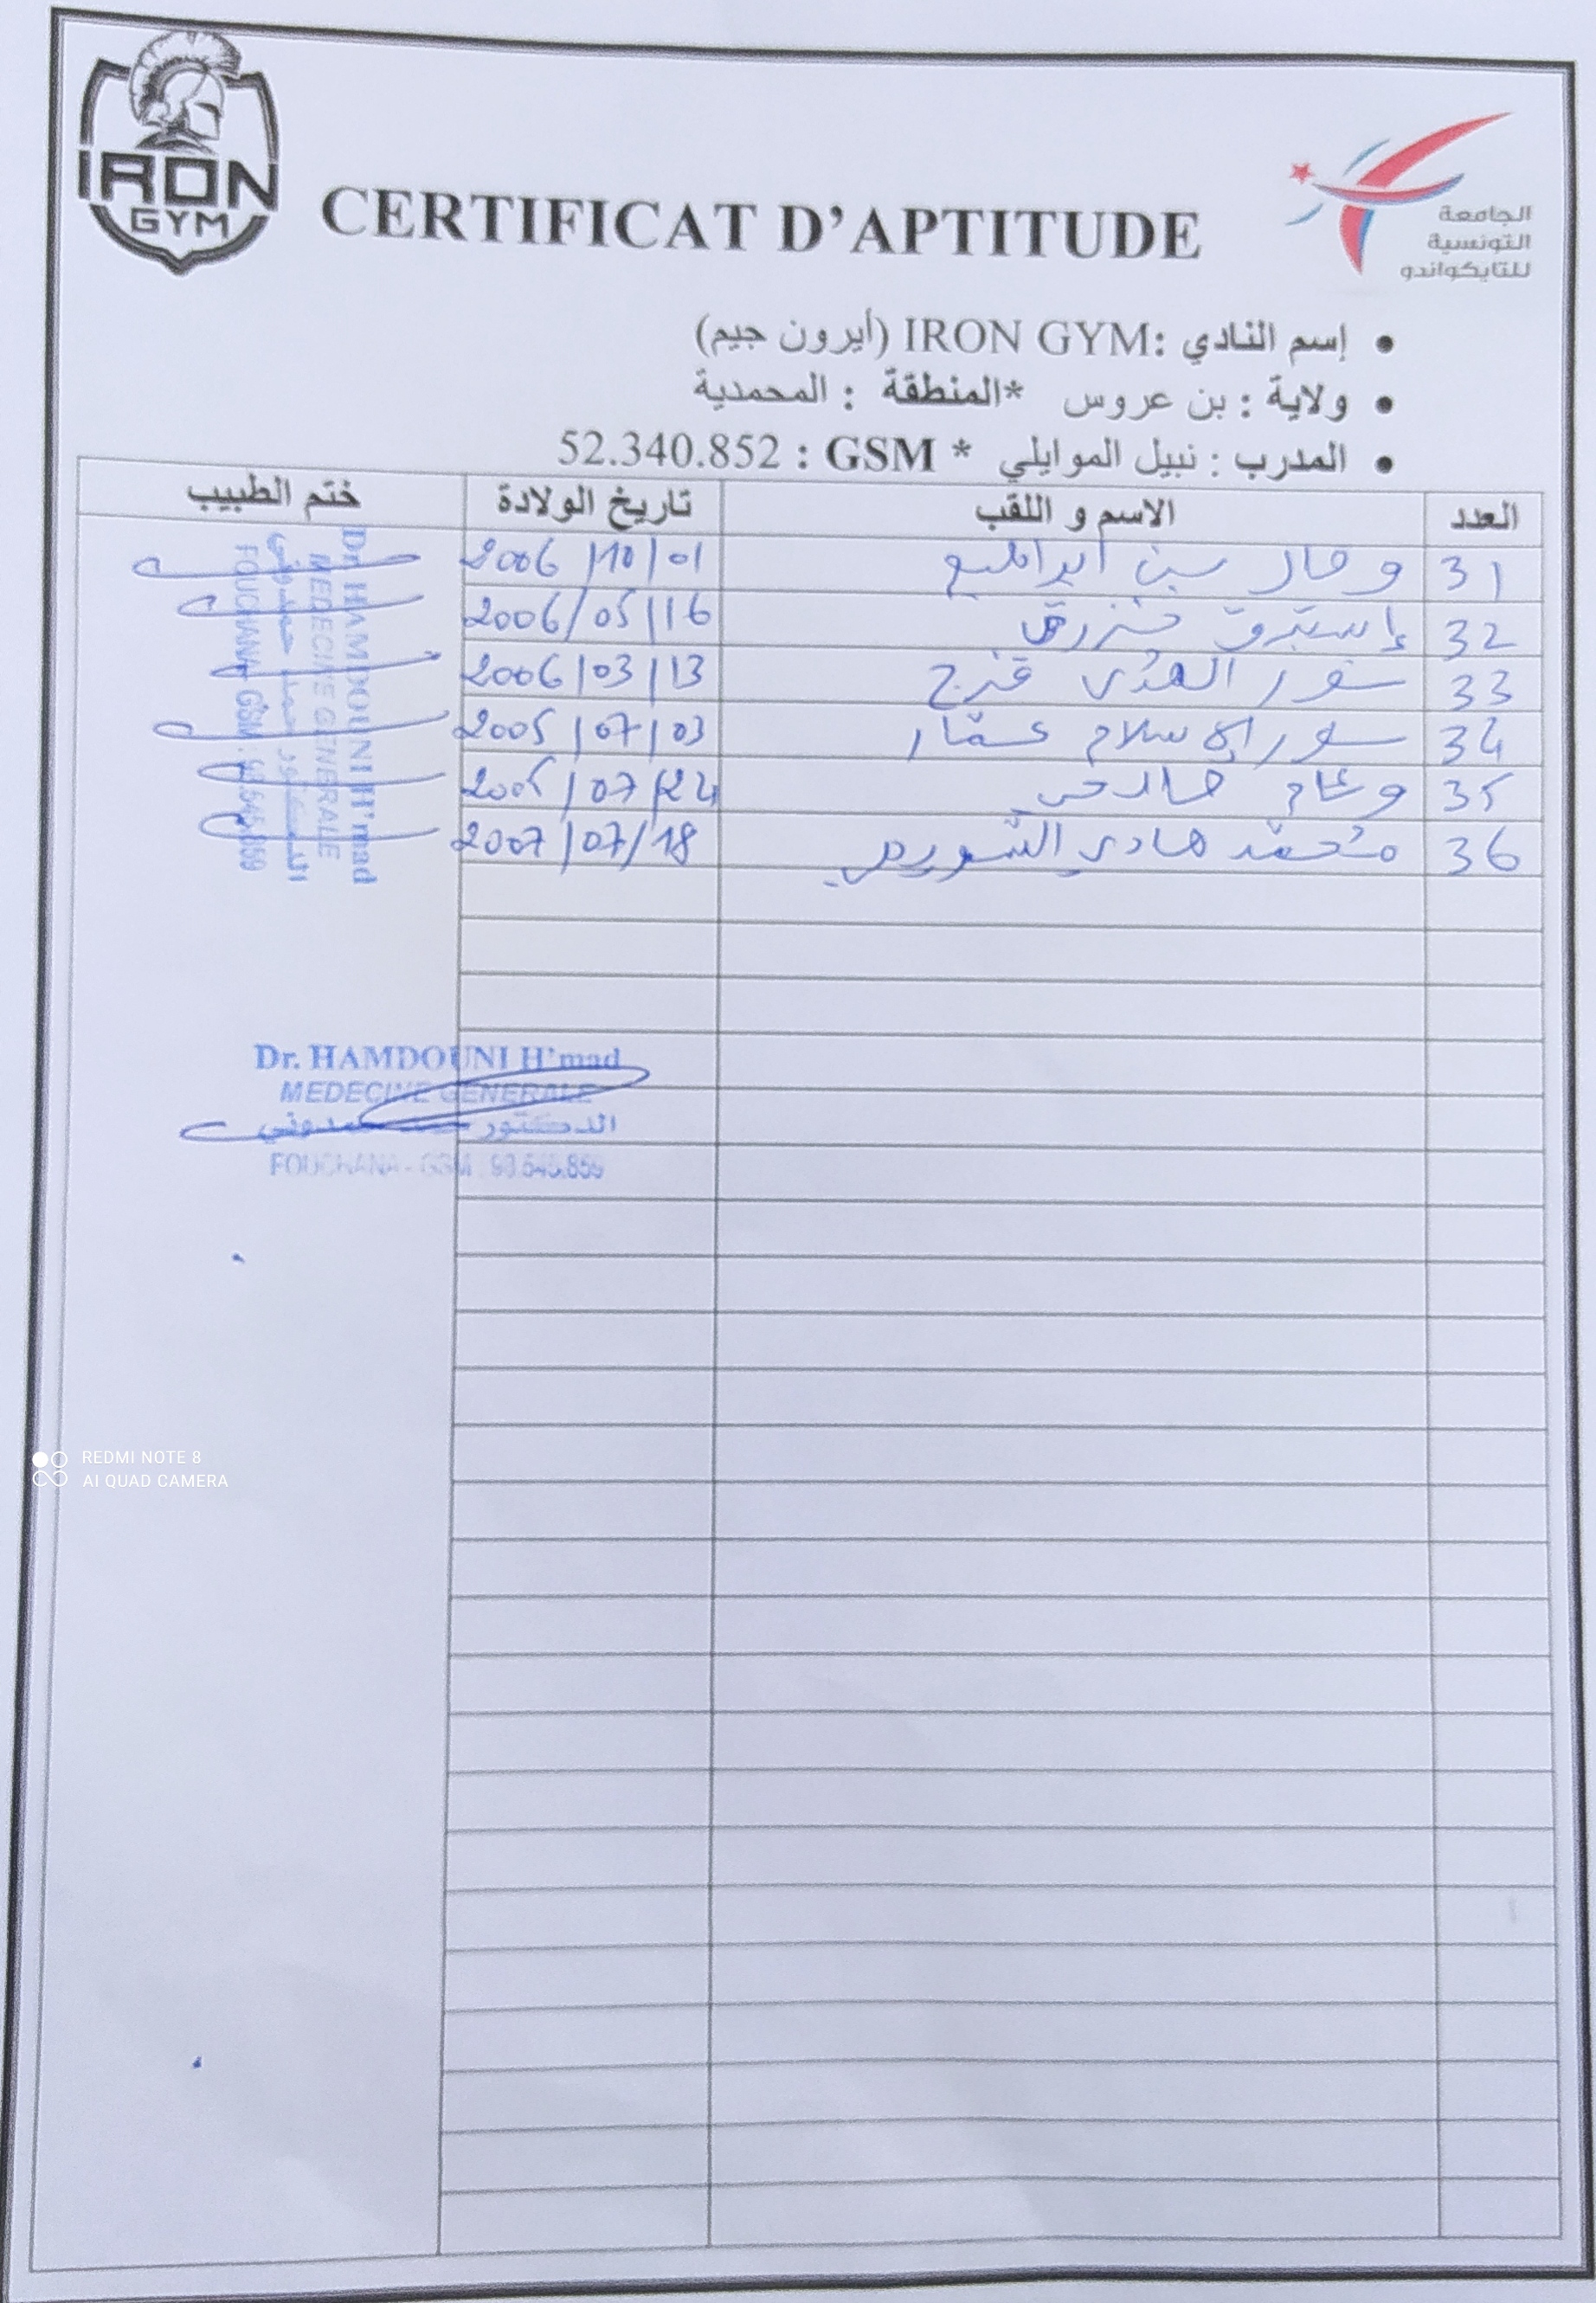 IRON
GYM
CERTIFICAT D'APTITUDE
الجامعة
التونسية
للتايكواندو
إسم النادي :IRON GYM (أيرون جيم)
ولاية : بن عروس *المنطقة : المحمدية
المدرب : نبيل الموايلي * GSM : 52.340.852
العدد الاسم و اللقب تاريخ الولادة ختم الطبيب
31 بن ابراهيم 2006/10/01
32 إستبرق 2006/05/16
33 نور الهدى فرج 2006/03/13
34 نور الإسلام عمّار 2005/07/03
35 وئام 2005/07/24
36 محمّد هادي 2007/07/18
Dr. HAMDOUNI H'mad
MEDECINE GENERALE
الدكتور حمد حمدوني
FOUCHANA - GSM : 98.545.859
Dr. HAMDOUNI H'mad
MEDECINE GENERALE
الدكتور حمدوني
FOUCHANA - GSM : 98.545.859
REDMI NOTE 8
AI QUAD CAMERA